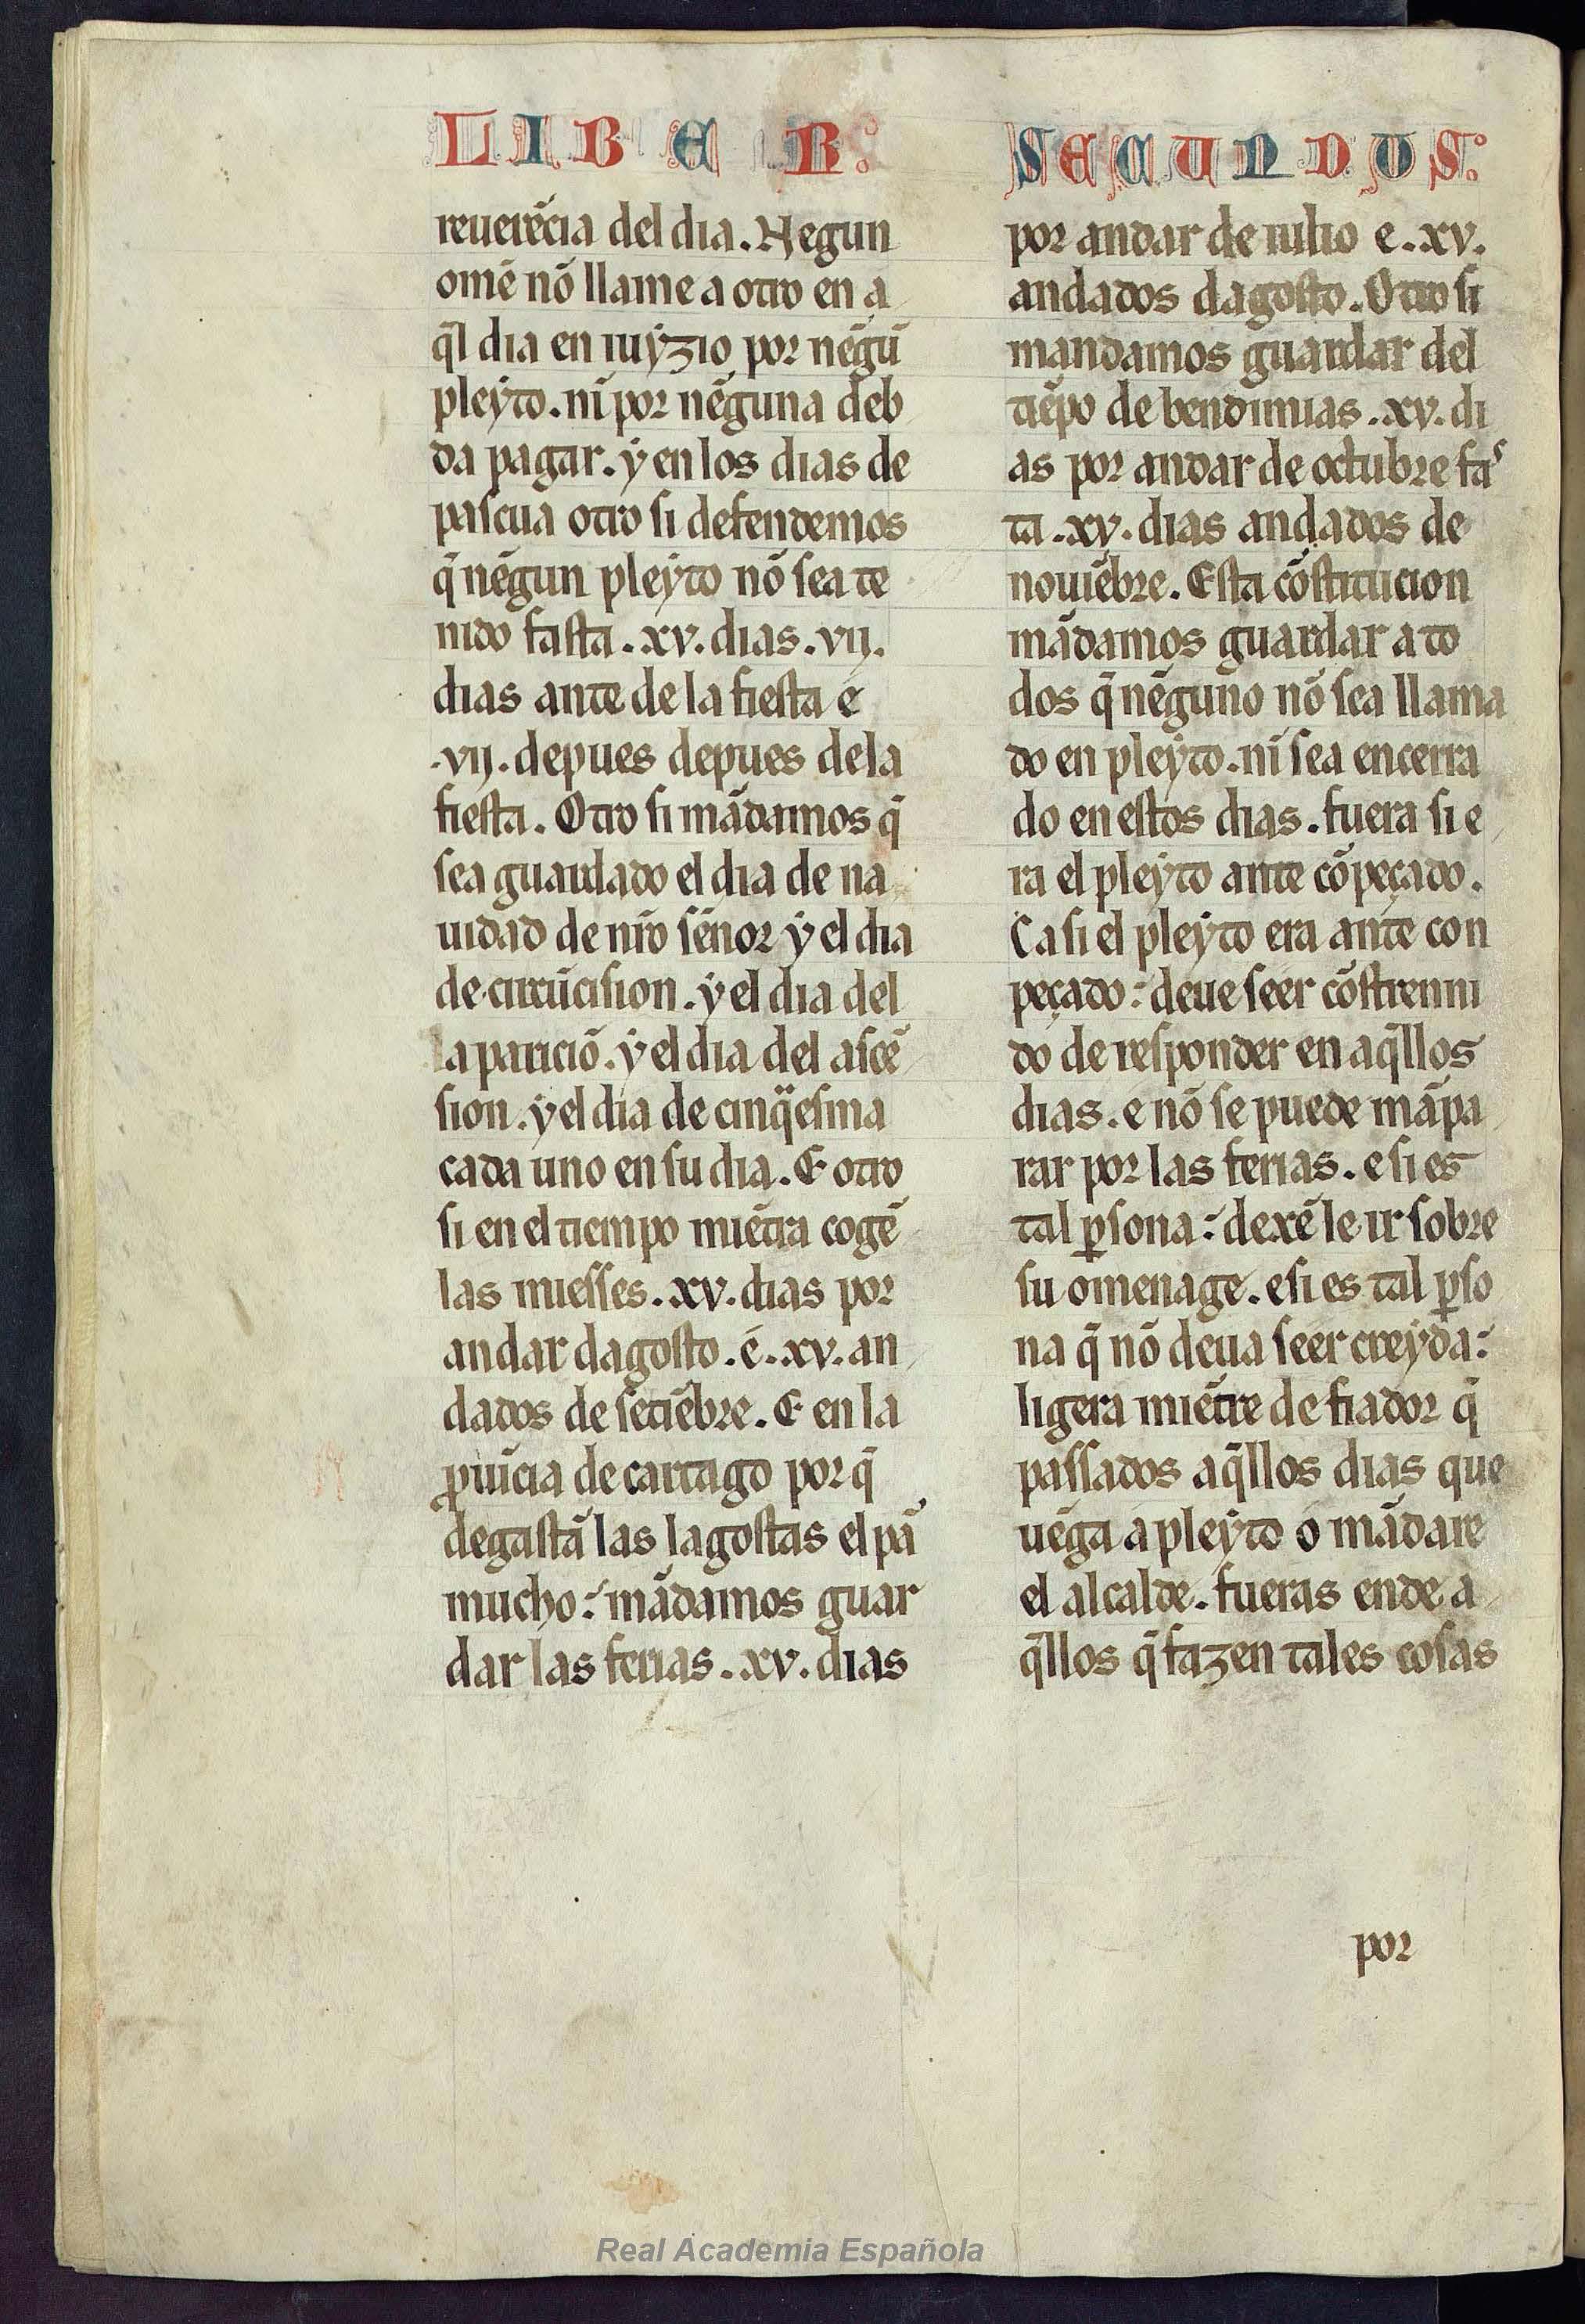 LIBER
reuerēcia del dia. Negun
omē nō llame a otro en a
q̄l dia en iuyzio por nēgū
pleyto. nī por nēguna deb
da pagar. y en los dias de
pascua otro si defendemos
q̄ nēgun pleyto nō sea te
nido fasta .xv. dias .vij.
dias ante de la fiesta e
.vij. depues depues de la
fiesta. Otro si mādamos q̄
sea guardado el dia de na
uidad de nr̄o sēnor y el dia
de circūcision. y el dia del
la pariciō. y el dia del ascē
sion. y el dia de cinq̈esma
cada uno en su dia. E otro
si en el tiempo miētra cogē
las miesses .xv. dias por
andar dagosto. e .xv. an
dados de setiēbre. E en la
ꝓuīcia de cartago por q̄
degastā las lagostas el pā
mucho: mādamos guar
dar las ferias .xv. dias
SECUNDUS
por andar de iulio e .xv.
andados dagosto. Otro si
mandamos guardar del
tiēpo de bendimias .xv. di
as por andar de octubre fas
ta .xv. dias andados de
nouiēbre. Esta cōstitucion
mādamos guardar a to
dos q̄ nēguno nō sea llama
do en pleyto. nī sea encerra
do en estos dias. fuera si e
ra el pleyto ante cōpeçado.
Ca si el pleyto era ante con
peçado: deue seer cōstrenni
do de responder en aq̄llos
dias. e nō se puede māpa
rar por las ferias. e si es
tal ꝑsona: dexē le ir sobre
su omenage. e si es tal ꝑso
na q̄ nō deua seer creyda:
ligera miētre de fiador q̄
passados aq̄llos dias que
uēga a pleyto o mādare
el alcalde. fueras ende a
q̄llos q̄ fazen tales cosas
por
Real Academia Española